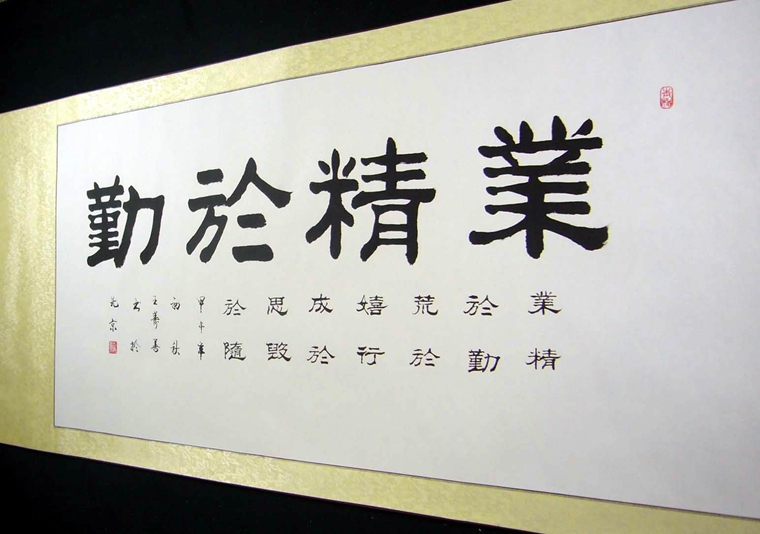 業精於勤
業精
於勤
荒於
嬉行
成於
思毀
於隨
甲午年
初秋
王善
書於
北京